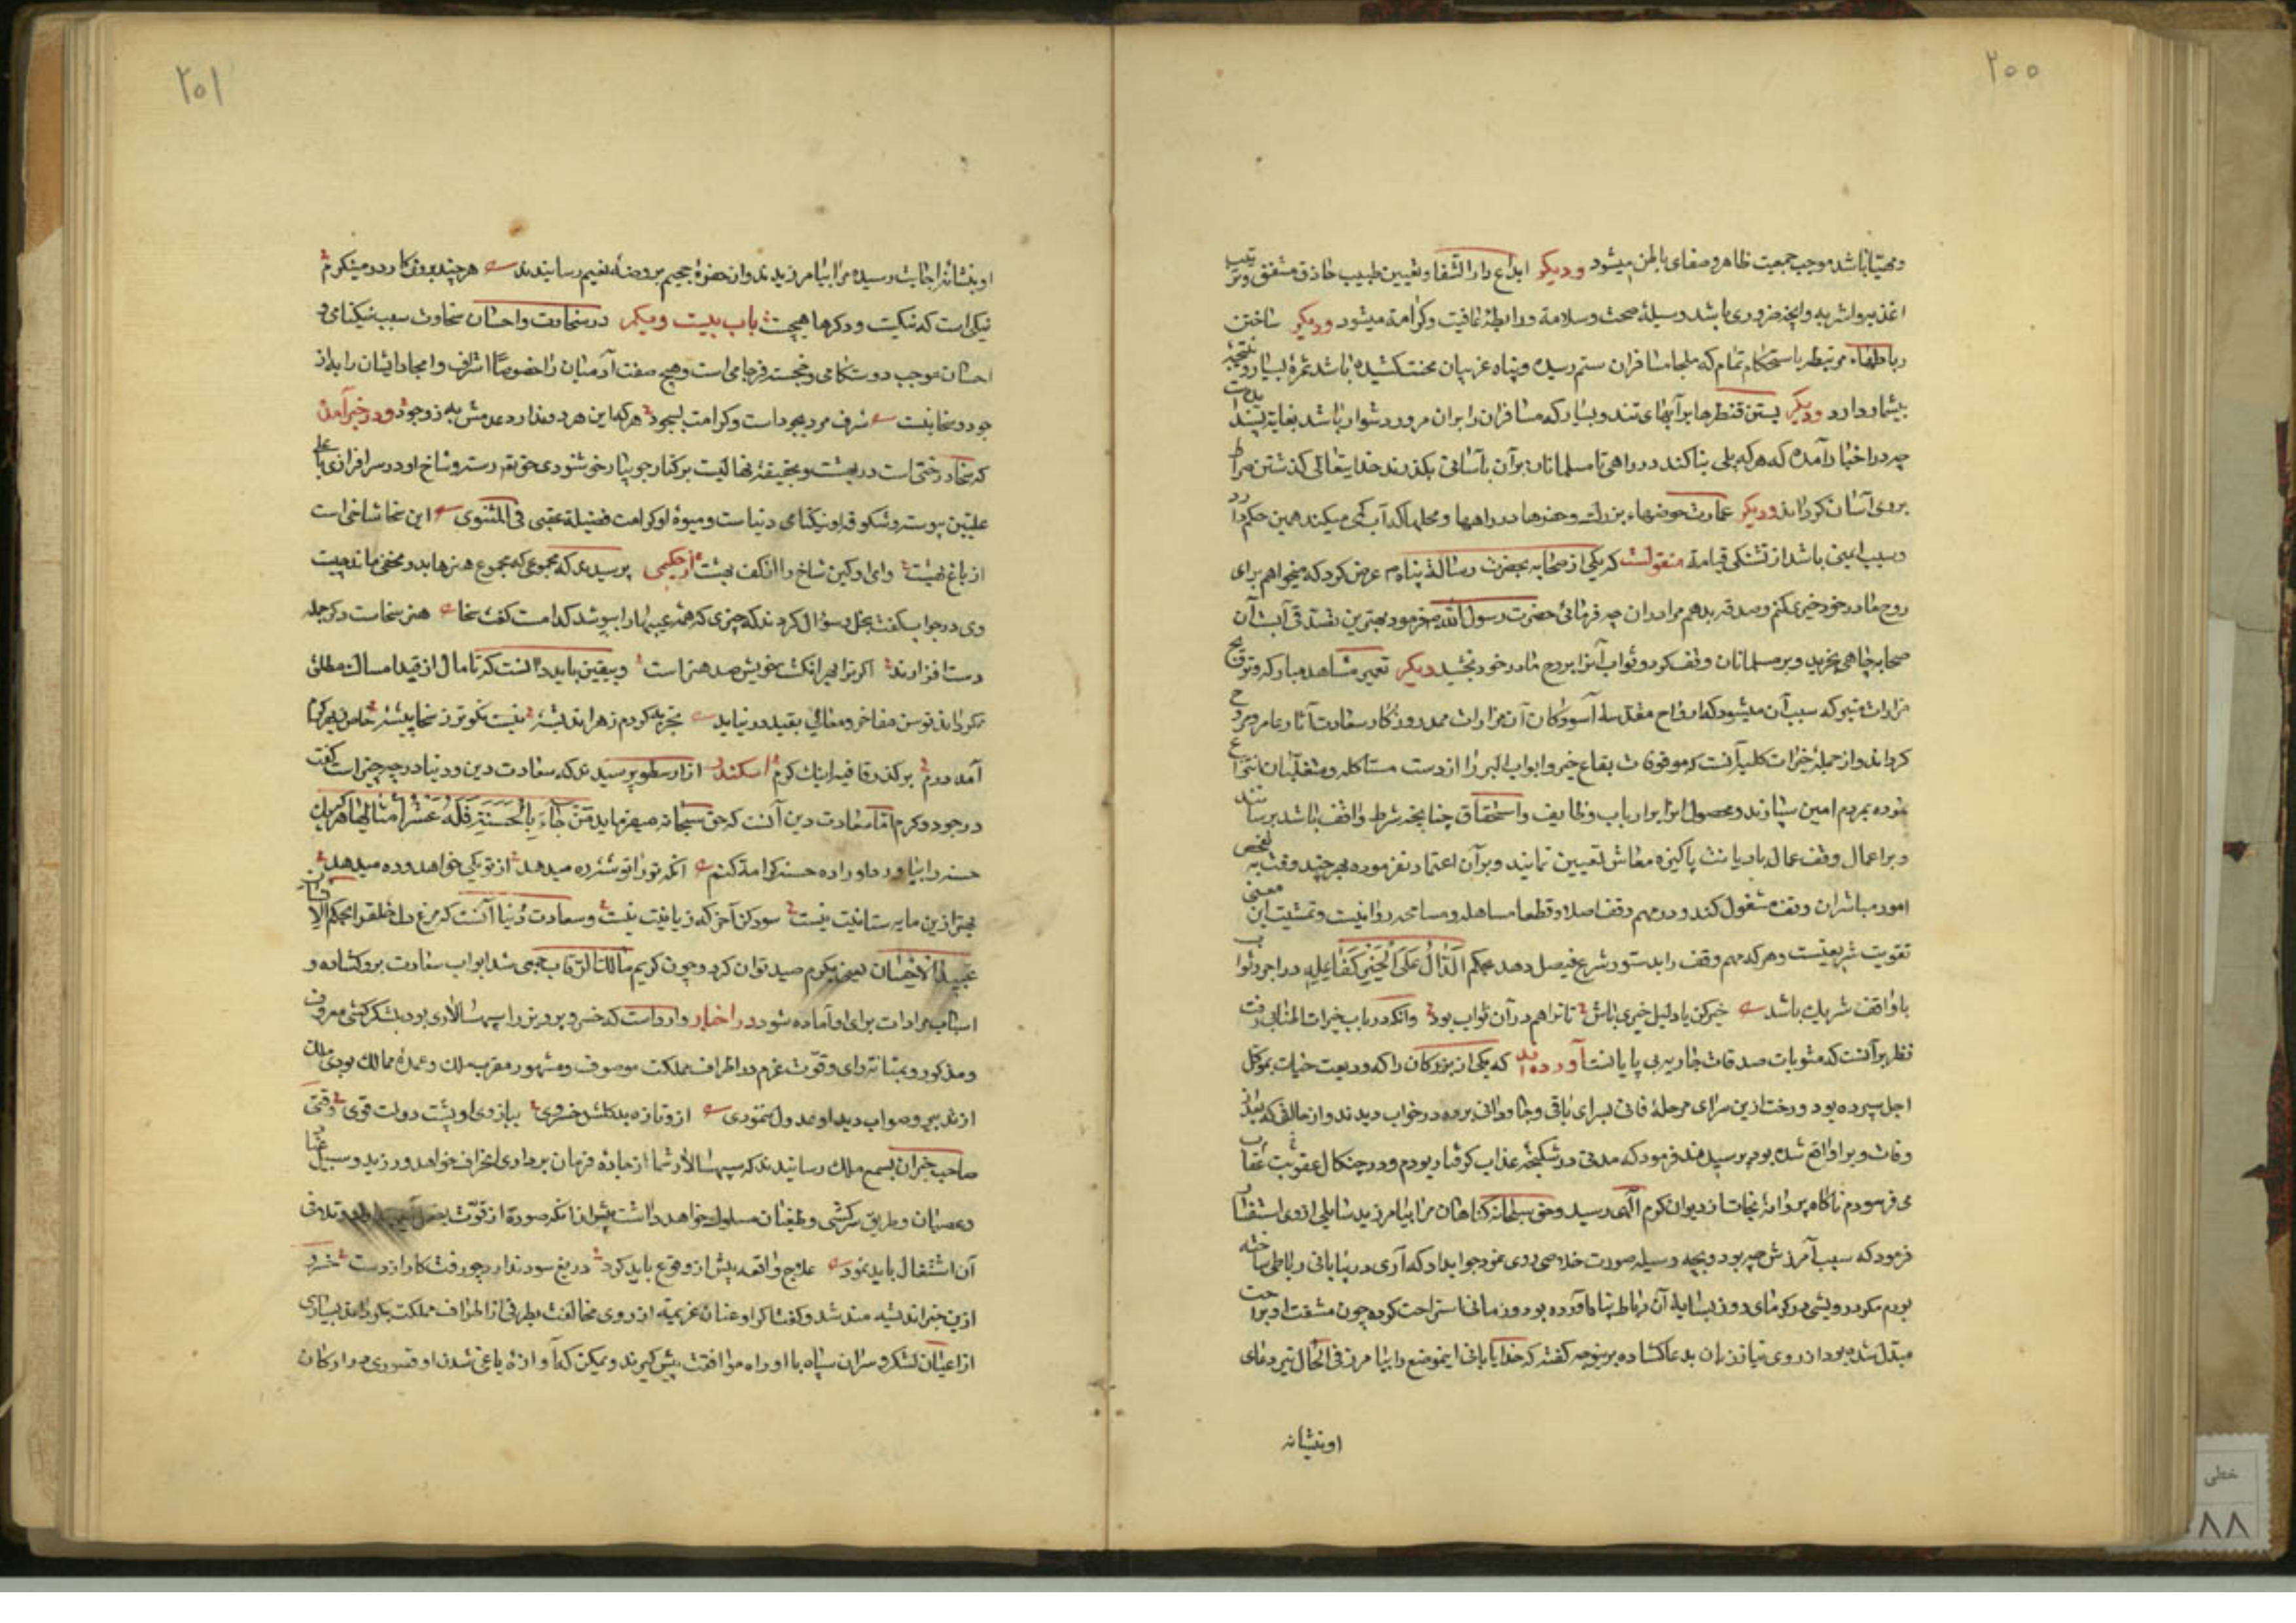 ۲۰۰
ومهیا باشد موجب جمعیت ظاهر وصفای باطن میشود ودیکر ابداع دار الشفا وتعیین طبیب حاذق مشفق وترتیب
اغذیه واشربه وآنچه ضروری باشد وسیلهٔ صحت وسلامة ورابطهٔ عافیت وکرامة میشود ودیکر ساختن
رباطهاء مرتبط باستحکام تمام که ملجا مسافران ستم رسیده وپناه غریبان محنت کشیده باشد ثمرهٔ بسیار ونتیجهٔ
بیشمار دارد ودیکر بستن قنطرها بر آبهای تند وبسیار که مسافران را بر ان مرور دشوار باشد بغایة پسندیدست
چه در اخبار آمده که هر که پلی بنا کند در راهی تا مسلمانان بر آن بآسانی بکذرند خدایتعالی کذشتن صراط
بروی آسان کرداند ودیکر عمارت حوضهاء بزرك وحفرها در راهها ومحلها که آب کمی میکند همین حکم دارد
وسبب ایمنی باشد از تشنکی قیامة منقولست که یکی از صحابه بحضرت رسالة پناه م عرض کرد که میخواهم برای
روح مادر خود خیری کنم وصدقه بدهم مرا در ان چه فرمائی حضرت رسول الله فرمود بهترین تصدق آبست آن
صحابه چاهی بخرید وبر مسلمانان وقف کرد وثواب آنرا بروح مادر خود بخشید دیکر تعمیر مشاهد مبارکه وترویح
مزارات متبرکه سبب آن میشود که ارواح مقدسه آسودکان آن مزارات ممد روزکار سعادت آثار عامر ومروح
کرداند واز جملهٔ خیرات کلیه آنست که موقوفات بقاع خیر وابواب البر را از دست مستاکله ومتغلبان انتزاع
نموده بمردم امین سپارند ومحصول آنرا بر ارباب وظایف واستحقاق چنانچه شرط واقف باشد برسانند
وبر اعمال وقف عمال بادیانت پاکیزه معاش تعیین نمایند وبر آن اعتماد نفرموده بهر چند وقت به تفحص
امور مباشران وقف مشغول کند ودر مهم وقف اصلا وقطعا مساهله ومسامحه روا نیست وتمشیت این معنی
تقویت شریعتست وهر که مهم وقف را بدستور شرع فیصل دهد بحکم الدَّالُ عَلَى الْخَيْرِ كَفَاعِلِهِ در اجر وثواب
با واقف شریك باشد خیر کن یا دلیل خیری باش تا ترا هم در آن ثواب بود وآنکه در باب خیرات المثابی رفت
نظر بر آنست که مثوبات صدقات جاریه بی پایانست آورده اند که یکی از بزرکان را که ودیعت حیات بموکل
اجل سپرده بود ورخت ازین سرای مرحلهٔ فانی بسرای باقی وجاودانی برده در خواب دیدند واز حالتی که بعد از
وفات وبر او واقع شده بود پرسیدند فرمود که مدتی در شکنجهٔ عذاب کرفتار بودم ودر چنکال عقوبت عقاب
می فرسودم ناکاه پروانهٔ نجات از دیوان کرم الهی رسید وحق سبحانه کناهان مرا بیامرزید سایلی از وی استفسار
فرمود که سبب آمرزش چه بود وبچه وسیله صورت خلاصی روی نمود جواب داد که آری در بیابانی رباطی ساخته
بودم مکر درویشی در کرمای روز بسایهٔ آن رباط پناه آورده بود وزمانی استراحت کرده چون مشقت او براحت
مبدل شده بود از روی نیاز زبان بدعا کشاده بر ینوجه کفته که خدایا بانی اینموضع را بیامرز فی الحال تیر دعای
اوبنشانه
۲۰۱
اوبنشانهٔ اجابت رسیده مرا بیامرزیدند واز حفرهٔ جحیم بروضهٔ نعیم رسانیدند هر چند بروی کار در مینکرم
نیکی است که نیکست ودکرها هیچست باب بیست ویکم در سخاوت واحسان سخاوت سبب نیکنامی و
احسان موجب دوستکامی وخجسته فرجامی است وهیچ صفت آدمیان را خصوصًا اشراف وامجاد ایشان را به از
جود وسخا نیست شرف مرد بجود است وکرامت بسجود هر که این هر دو ندارد عدمش به ز وجود ودر خبر آمده
که سخا درختی است در بهشت وبحقیقة نهالیست بر کنار جویبار خوشنودی حق تع رسته وشاخ او در سرافرازی با على
علیین پیوسته وشکوفه او نیکنامی دنیاست ومیوهٔ او کرامت فضیلة عقبی فی المثنوی این سخا شاخی است
از باغ بهشت وای او کین شاخ را از کف بهشت از حکیمی پرسیدند که مجموعی که مجموع هنرها بدو مخفی ماند چیست
وی در جواب کفت بخل وسؤال کردند که چیزی که همه عیبها را بپوشد کدامست کفت سخا هنر سخاست ودکر جمله
دست افزارند اکر ترا بهر انکشت خویش صد هنر است وبیقین باید دانست که تا مال از قید امساك مطلق
نکرداند توسن مفاخر ومعالی بقید در نیاید تجربه کردم ز هر اندیشهٔ نیست نکوتر ز سخا پیشهٔ خاص ز بهر کرم
آمد درم بر کذر قافیه اینك کرم اسکندر از ارسطو پرسید ند که سعادت دین ودنیا در چه چیز است کفت
در جود وکرم اما سعادت دین آنست که حق سبحانه میفرماید مَنْ جَاءَ بِالْحَسَنَةِ فَلَهُ عَشْرُ أَمْثَالِهَا هر که یك
حسنه را بیاورد او را ده حسنه کرامة کنم آنکه تو را توشهٔ ره میدهد از تو یکی خواهد وده میدهد
بهتر ازین مایه ستانیت نیست سود کن آخر که زیانیت نیست وسعادت دنیا آنست که مرغ دل خلق را بحکم الانسان
عبید الاحسان یعنی بکرم صید توان کرد وچون کریم مالك الرقاب جمعی شد ابواب سعادت برو کشاده و
اسباب مرادات برای او آماده شود در اخبار وارد است که خسرو پرویز را سپهسالاری بود بلشکر کشی معروف
ومذکور وبمتانة رای وقوت عزم در اطراف مملکت موصوف ومشهور مقرب ملك وعمدهٔ ممالك بودی ملك
از تدبیر وصواب دید او عدول ننمودی ازو تازه بد کلشن خسروی ببازوی او پشت دولت قوی وقتی
صاحب خبران بسمع ملك رسانیدند که سپهسالار شما از جادهٔ فرمان برداری انحراف خواهد ورزید وسبیل عناد
وعصیان وطریق سرکشی وطغیان مسلوك خواهد داشت پیش از انکه صورة از قوّت بفعل آید وتلافی
آن اشتغال باید نمود علاج واقعه پیش از وقوع باید کرد دریغ سود ندارد چو رفت کار از دست خسرو
ازین خبر اندیشه مند شد وکفت اکر او عنان عزیمة از روی مخالفت بطرفی از اطراف مملکت بکرداند بسیاری
از اعیان لشکر وسران سپاه با او راه موافقت پیش کیرند وممکن که از آوازهٔ یاغی شدن او قصوری در ارکان
خطی
۸۸